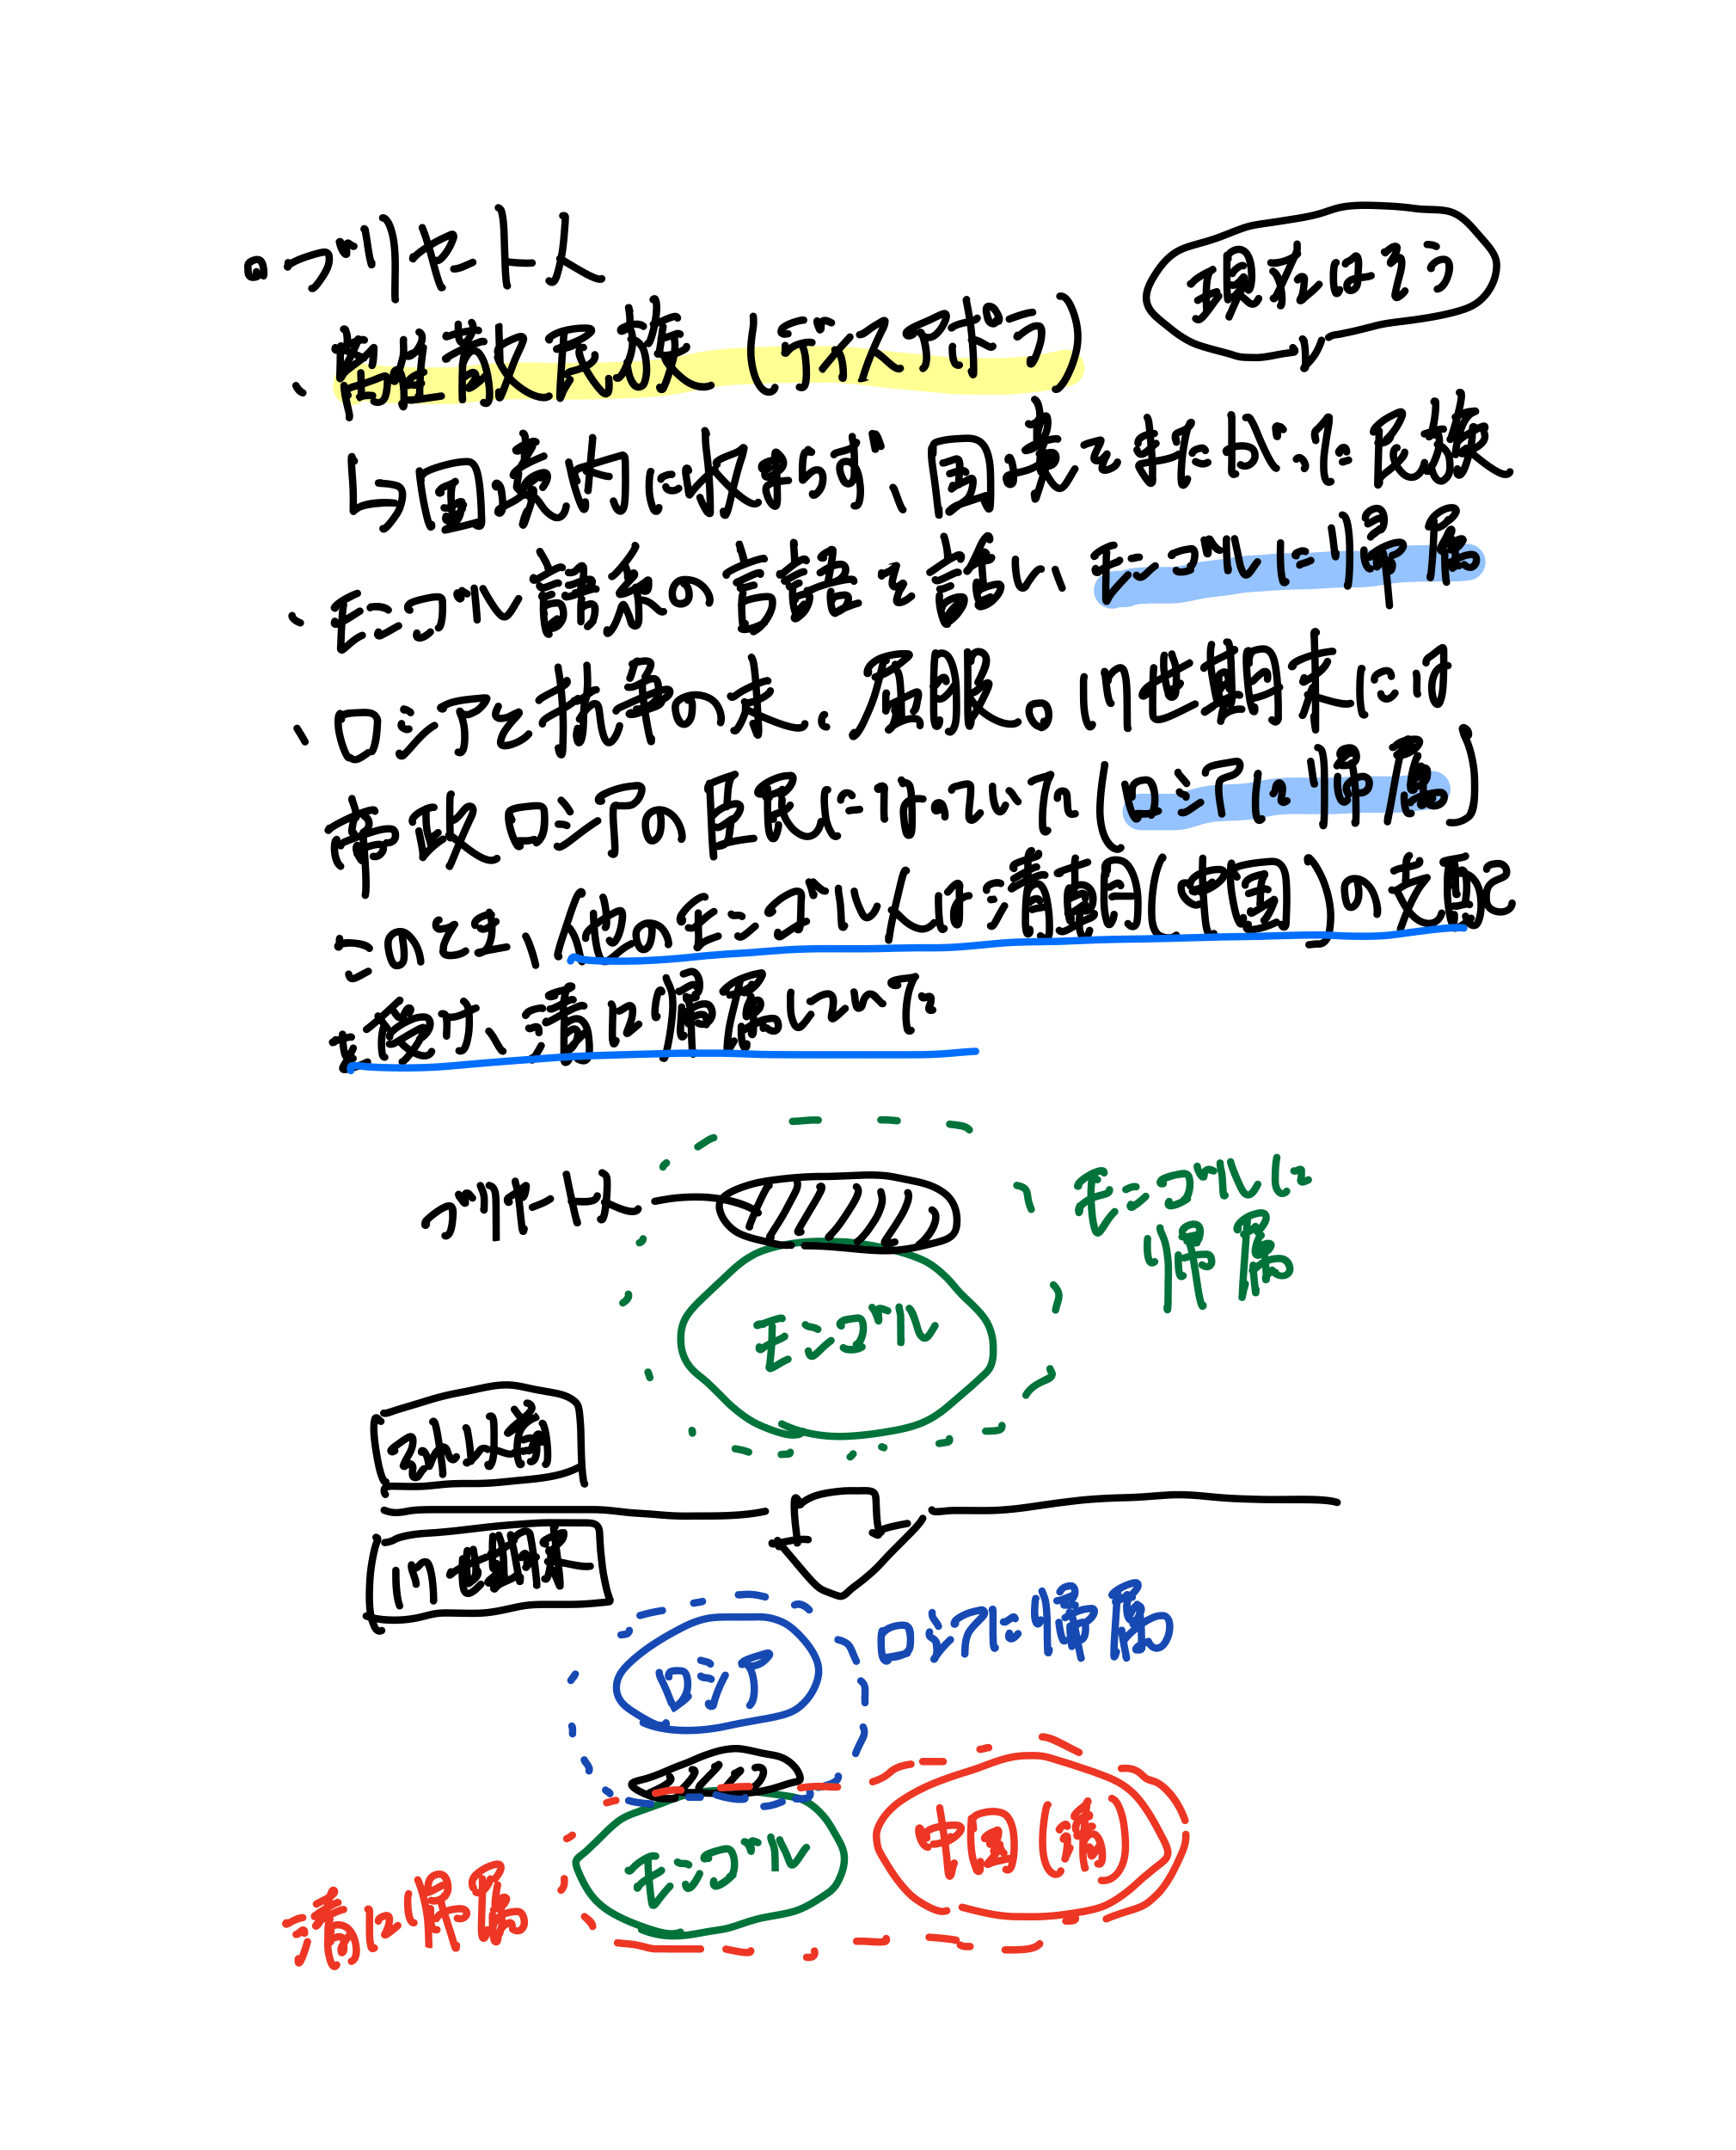 ・ブリヤート人
現在はそう
・跨境黄教民族(行くて外的)
↳国境内に収まらず、国境を隔だてた民族
・モンゴル諸系の言語を話し、モンゴルに帰属
・ロシアと抗争の末、屈服。17世期末には
帝政ロシアの臣民になっていた(ロシアに帰属)
このとき、他のモンゴル人は清朝(中国)の支配
を受け、清に帰属していた
ブリヤート人
モンゴルに
帰属
モンゴル
それ以前
17世期末
ロシアに帰属
ロシア
モンゴル
中国(清)
清に帰属